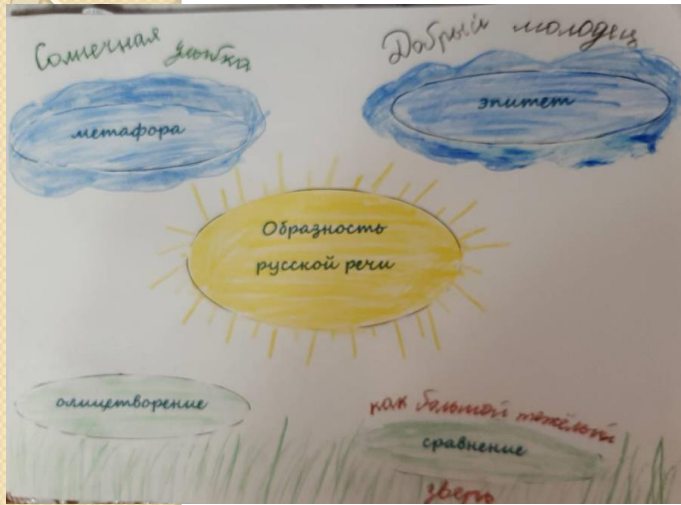 Солнечная улыбка
метафора
Добрый молодец
эпитет
Образность
русской речи
олицетворение
как большой тяжёлый
сравнение
зверь